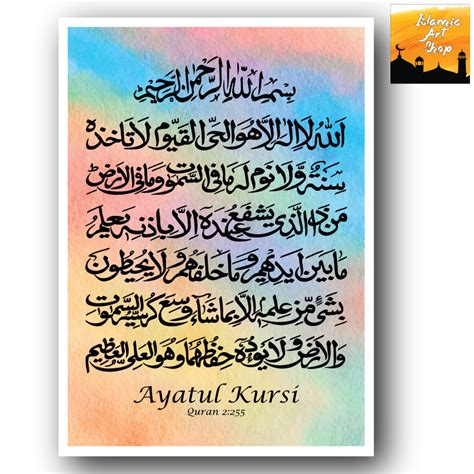 بسم الله الرحمن الرحيم
الله لا اله الا هو الحي القيوم لا تاخذه
سنة ولا نوم له ما في السموت وما في الارض
من ذا الذي يشفع عنده الا باذنه يعلم
ما بين ايديهم وما خلفهم ولا يحيطون
بشئ من علمه الا بما شاء وسع كرسيه السموت
والارض ولا يؤده حفظهما وهو العلي العظيم
Ayatul Kursi
Quran 2:255
Islamic
Art
Shop